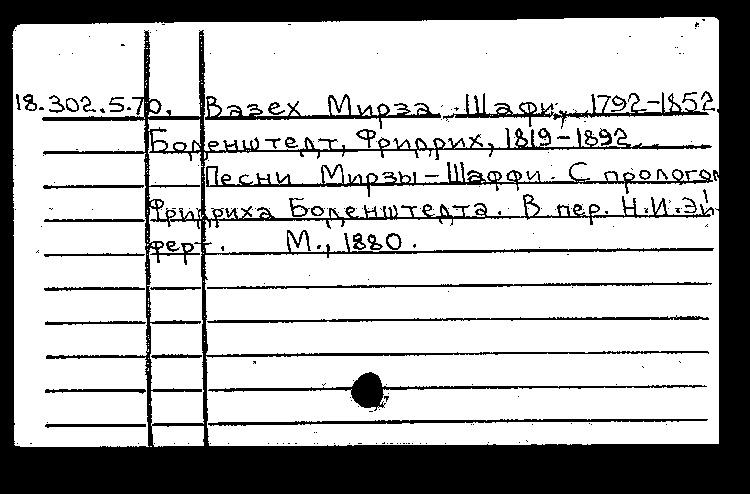 18.302.5.70. Вазех Мирза Шафи, 1792-1852.
Боденштедт, Фридрих, 1819-1892.
Песни Мирзы-Шаффи. С пролого
Фридриха Боденштедта. В пер. Н.И.Эй-
ферт. М., 1880.